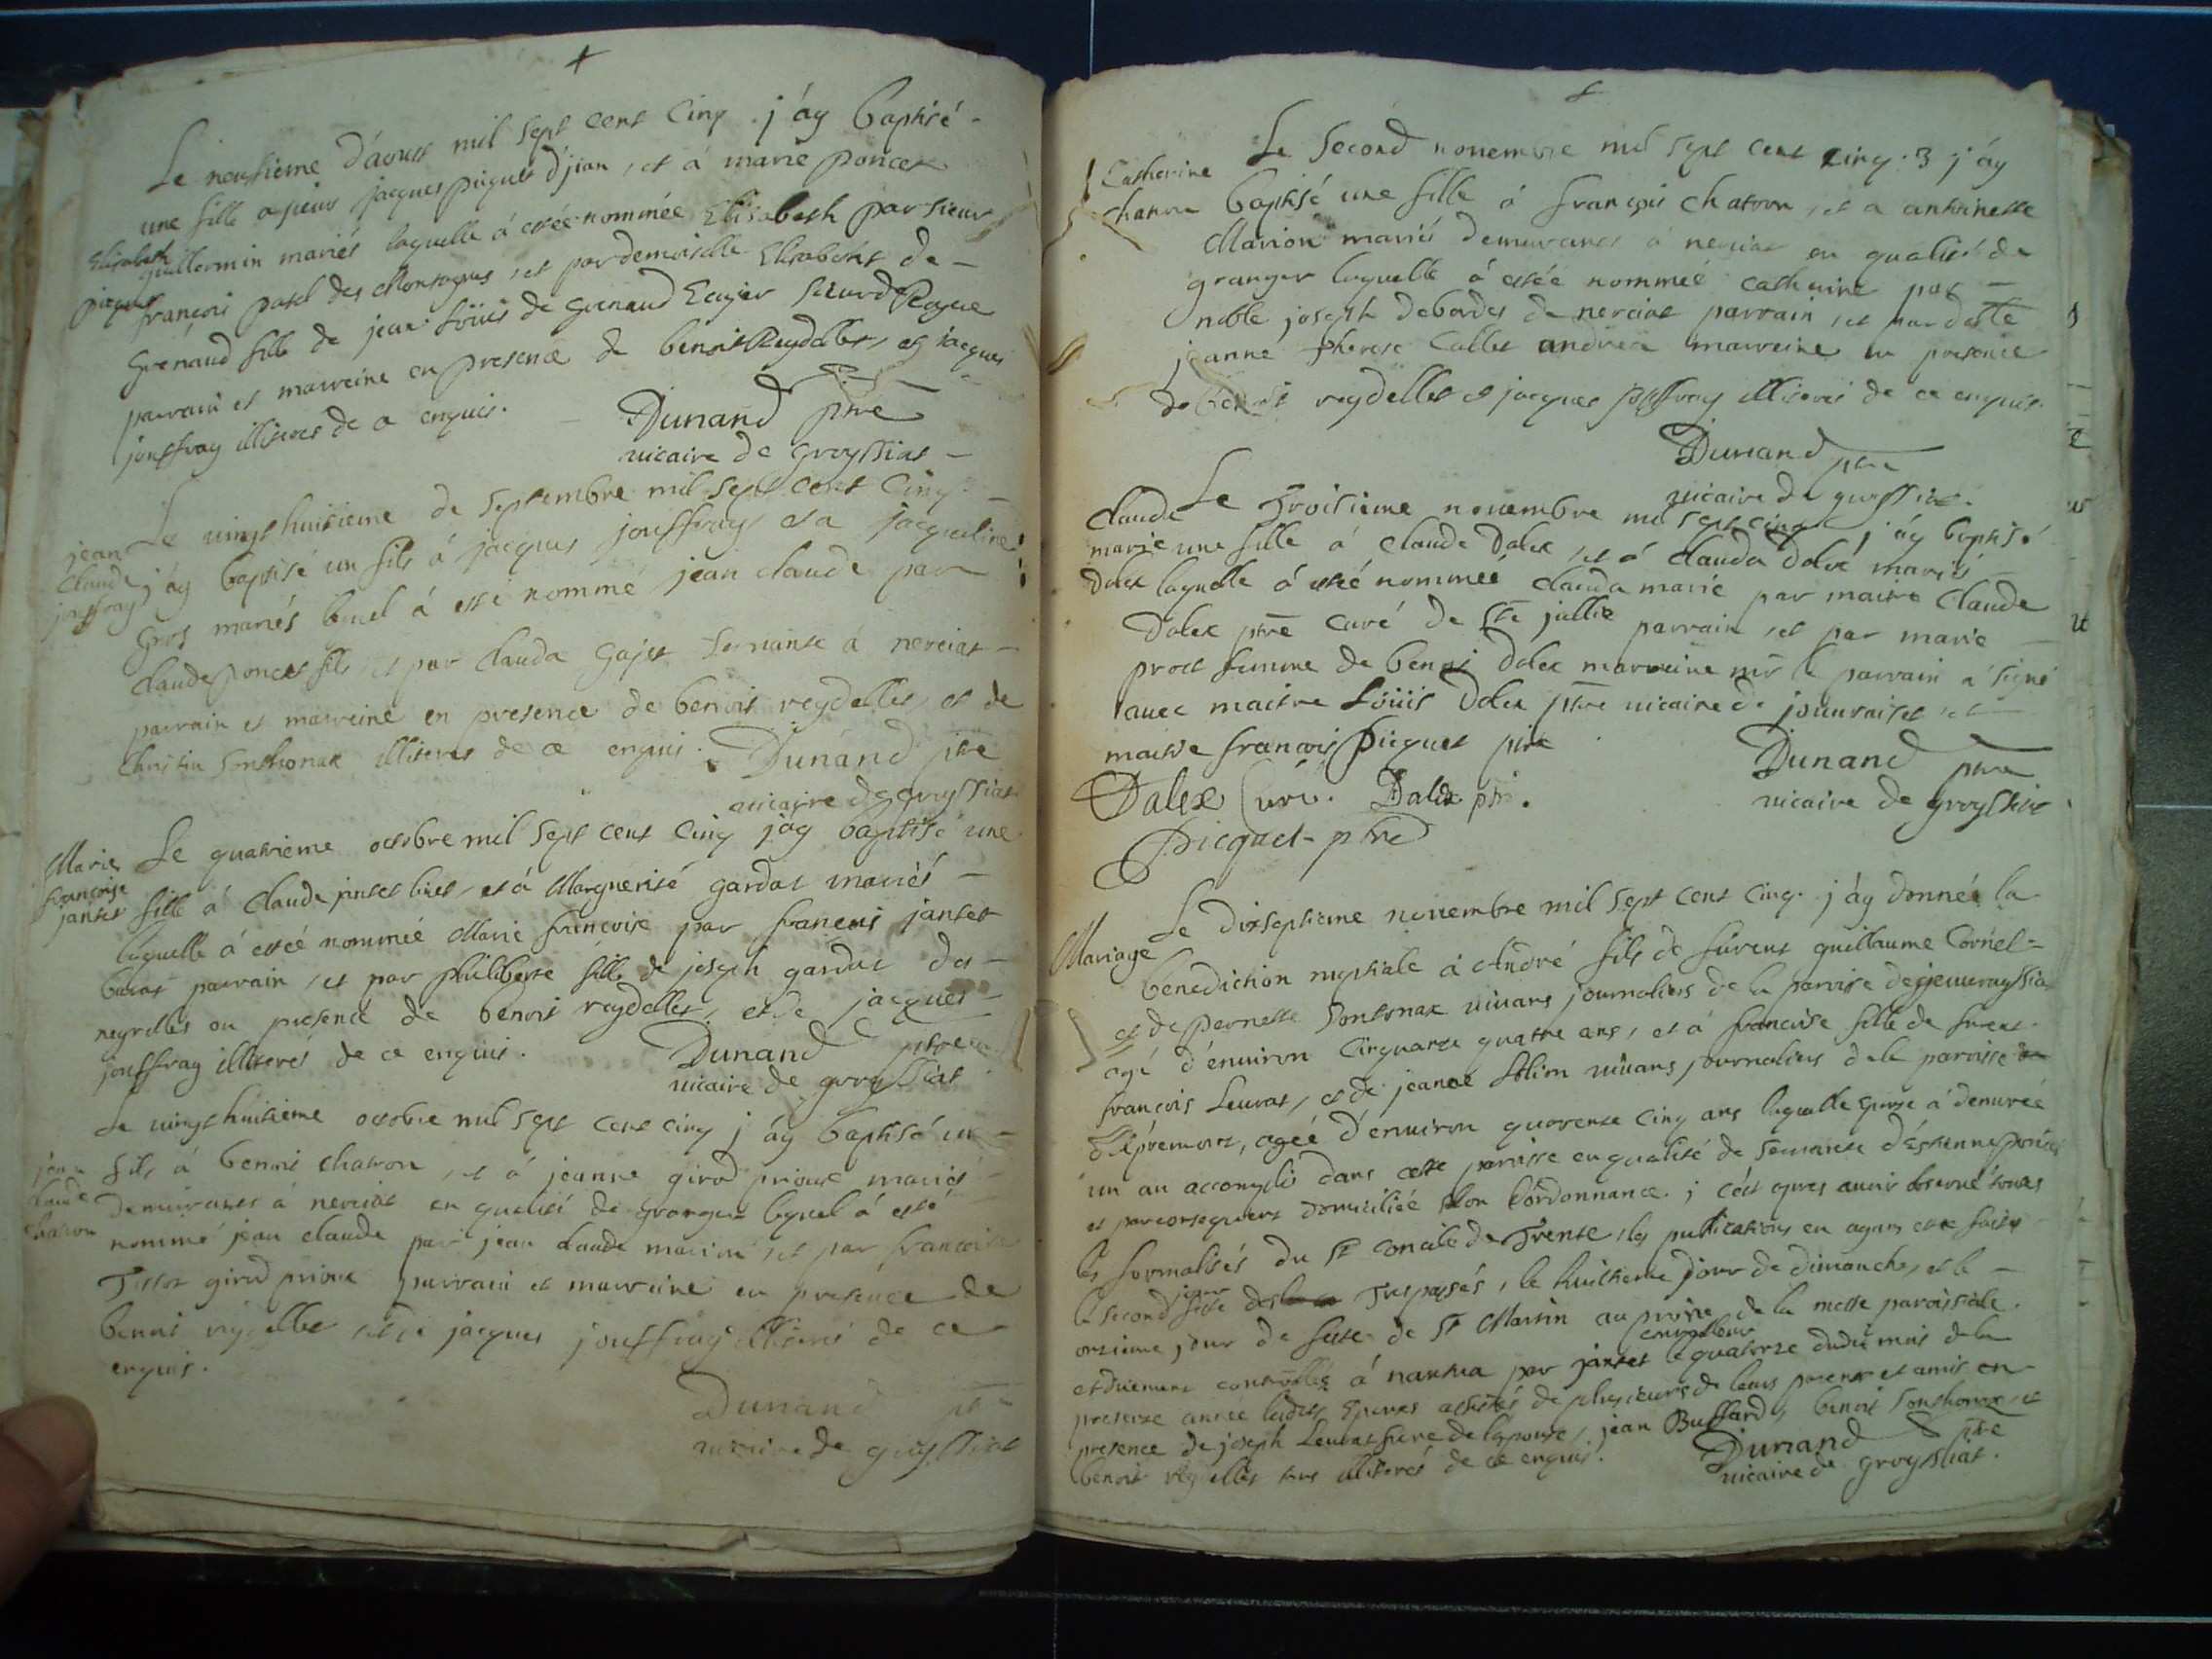 Le neufieme d'aoust mil sept cent cinq j'áy baptisé
une fille a sieur jacques piquet d'jean, et á marie poncet
Elisabeth
piquet
guillermin mariés laquelle á estée nommée Elisabeth par sieur
françois patel des Montagnes, et par demoiselle Elisabeht de
Grenaud fille de jean Loüis de Grenaud Ecuyer Sieur de Rogue
parrain et marreine en presence de benoit Reydellet, et jacques
jouffray illiterés de ce enquis.
Dunand ptre
vicaire de groyssiat
Le vingt huitieme de septembre mil sept cent cinq
jean
claude
jouffray
j'áy baptisé un fils á jacques jouffray et a jacqueline
Gros mariés lequel á esté nommé jean claude par
claude poncet fils, et par clauda Gajet servante a nerciat
parrain et marreine en presence de benoit reydellet, et de
christin Sonthonax illiteres de ce enquis. Dunand ptre
vicaire de groyssiat
Marie
françoise
jantet
Le quatrieme octobre mil sept cent cinq j'áy baptisé une
fille á Claude jantet , et á Marguerite gardat mariés
laquelle á esté nommée Marie françoise par françois jantet
parrain, et par philiberte fille de joseph gardat des
neyrolles en presence de benoit reydellet, et de jacques
jouffray illiterés de ce enquis.
Dunand ptre
vicaire de groyssiat
Le vingt huitieme octobre mil sept cent cinq j'áy baptisé un
jean
claude
chatron
fils á benoit chatron, et á jeanne girod prioux mariés
demeurants á nerciat en qualité de granger lequel á esté
nommé jean claude par jean claude marion, et par françoise
Tissot girod prioux parrain et marreine en presence de
benoit reydellet, et de jacques jouffray illiterés de ce
enquis.
Dunand ptre
vicaire de groyssiat
Catherine
chatron
Le second novembre mil sept cent cinq. j'áy
baptisé une fille á françois chatron, et a antoinette
Marion mariés demeurants á nerciat en qualité de
granger laquelle á estée nommée catherine par
noble joseph debordes de nerciat parrain, et par
jeanne therese Callet andréa marreine en presence
de benoit reydellet et jacques jouffray illiterés de ce enquis.
Dunand ptre
vicaire de groyssiat.
claude
marie
Dalex
Le Troisieme novembre mil sept cinq j'áy baptisé
une fille á Claude Dalex, et á Clauda Dalex mariés
laquelle á estée nommée Clauda marie par maitre Claude
Dalex ptre curé de Ste jullie parrain, et par marie
prost femme de benoit Dalex marreine mr le parrain á signé
avec maitre Loüis Dalex ptre vicaire de jouuraisset, et
maitre françois Picquet ptre
Dunand ptre
vicaire de groyssiat
Dalex Curé. Dalex ptre.
Picquet ptre
Mariage
Le dixseptieme novembre mil sept cent cinq. j'áy donnée la
benediction nuptiale á André fils de furent guillaume Cornet
et de pernette Sontonax vivants journaliers de la paroisse de
agé d'environ cinquante quatre ans, et á françoise fille de furent
françois Leurat, et de jeanne vivans journaliers de la paroisse
d'Apremont, agée d'environ quarente cinq ans laquelle épouse á demurée
un an accomplis dans cette paroisse en qualité de servante d'Estienne poncet
et parconsequent domiciliée selon l'ordonnance. j cest apres avoir observé toutes
les formalités du St Concile de Trente, les publications en ayant esté faites
le second jour des Trepassés, le huitieme jour de dimanche, et le
onzieme jour de feste de St Martin au prosne de la messe paroissiale.
et duement controllée á nantua par jantet controlleur le quatorze dudit mois de la
presente année lesdits Epoux assistés de plusieurs de leurs parents et amis en
presence de joseph Leurat frere de lepouse, jean Buffard, benoit Sonthonax, et
benoit reydellet tous illiterés de ce enquis.
Dunand ptre
vicaire de groyssiat.